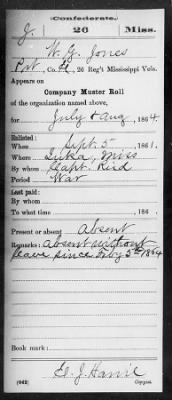 Confederate.
J. 26 Miss.
W. G. Jones
Pvt, Co. , 26 Reg't Mississippi Vols.
Appears on
Company Muster Roll
of the organization named above,
for July & Aug, 1864.
Enlisted:
When Sept. 5, 1861.
Where Iuka, Miss
By whom Capt. Reid
Period War
Last paid:
By whom
To what time , 186 .
Present or absent Absent
Remarks: Absent without
leave since Feby 5th 1864
Book mark:
(642) Copyist.